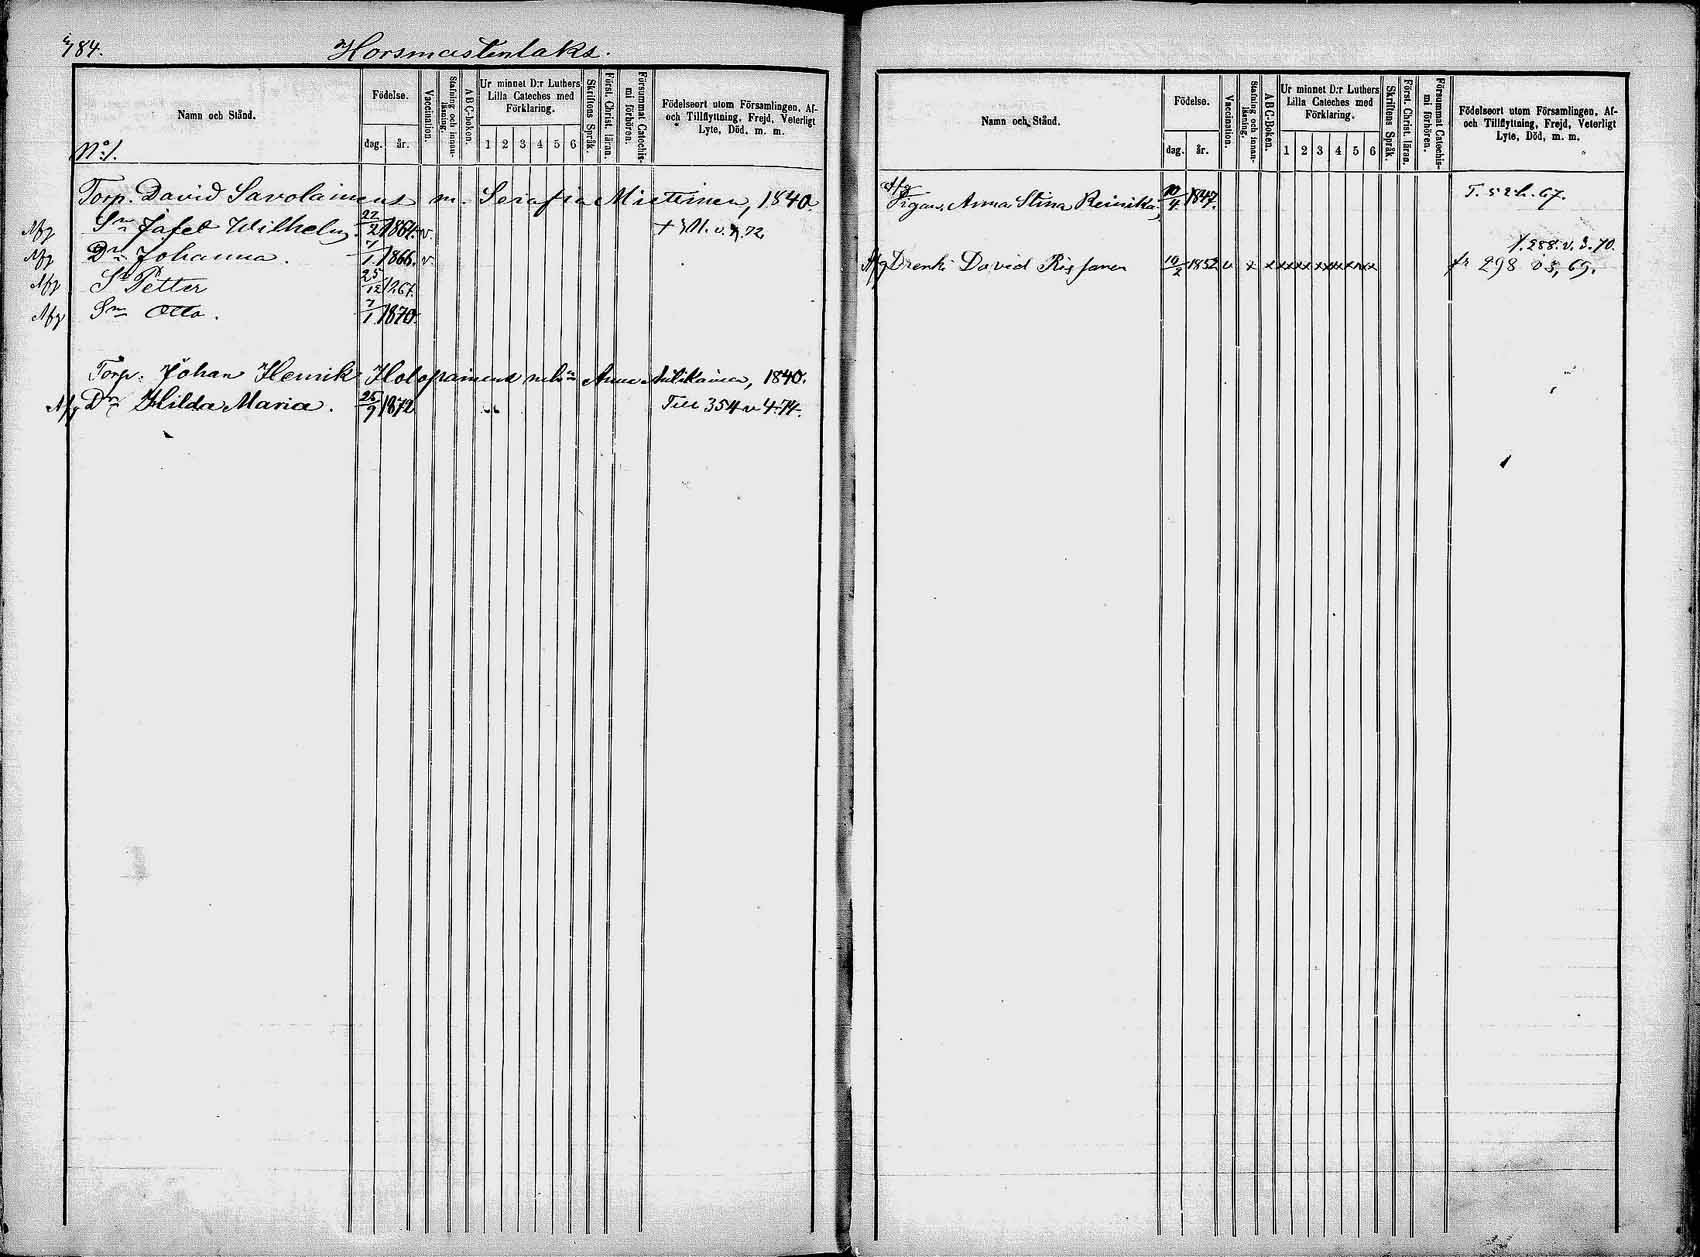 184.
Horsmastenlaks.
Namn och Stånd.
Födelse.
dag. år.
Vaccination.
Stafning och innanläsning.
A B C-boken.
Ur minnet D:r Luthers
Lilla Cateches med
Förklaring.
1 2 3 4 5 6
Skriftens Språk.
Förnt. Christ. läran.
Försummat Catechismi förhören.
Födelseort utom Församlingen, Af-
och Tillflyttning, Frejd, Veterligt
Lyte, Död, m. m.
No 1.
Torp. David Savolainens m. Serafia Miettinen, 1840.
Afg Sn Jafet Wilhelm. 22/2 1864. v. 72
Afg Dr Johanna. 7/1 1866. v.
Afg Sn Petter 25/12 1867.
Afg Sn Otto. 7/1 1870.
Torp. Johan Henrik Holopainens Anna 1840.
Afg Dr Hilda Maria. 25/9 1872 Till 354 v 4.74.
Namn och Stånd.
Födelse.
dag. år.
Vaccination.
Stafning och innanläsning.
A B C-Boken.
Ur minnet D:r Luthers
Lilla Cateches med
Förklaring.
1 2 3 4 5 6
Skriftens Språk.
Först. Christ. läran.
Försummat Catechismi förhören.
Födelseort utom Församlingen, Af-
och Tillflyttning, Frejd, Veterligt
Lyte, Död, m. m.
Afg
Pigan Anna Stina Reinikka 10/4 1847. T. 52 h. 67.
f. 288. v. 3. 70.
Afg Dreng David Rissanen 10/2 1852 v x x x x x x x x x x x fr 298 v 3, 69.